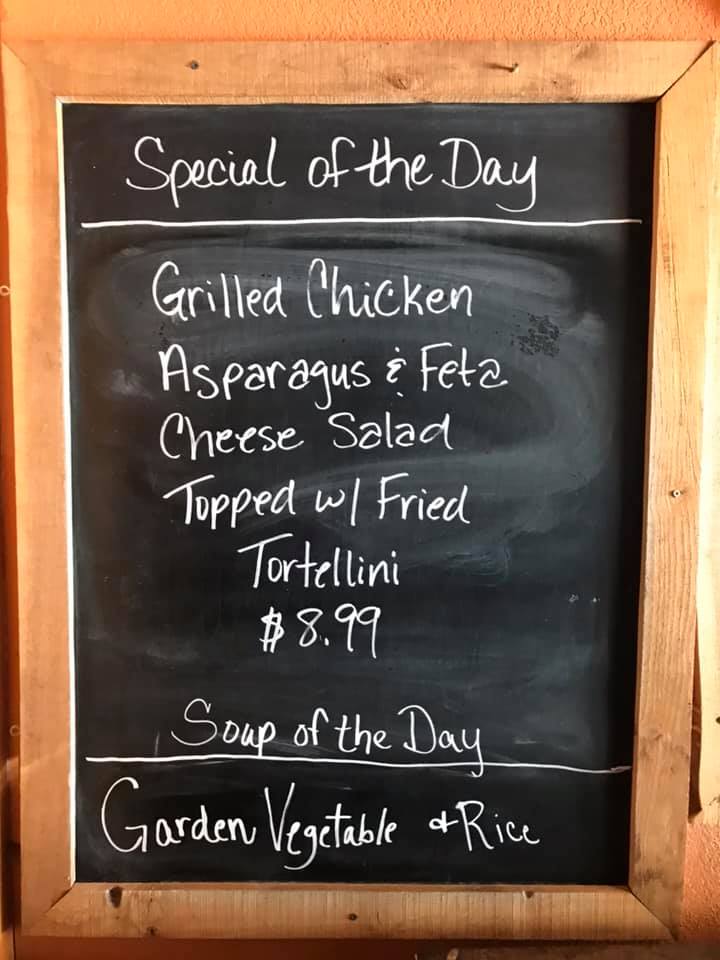 Special of the Day
Grilled Chicken
Asparagus & Feta
Cheese Salad
Topped w/ Fried
Tortellini
$8.99
Soup of the Day
Garden Vegetable & Rice